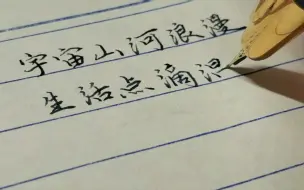 宇宙山河浪漫
生活点滴温